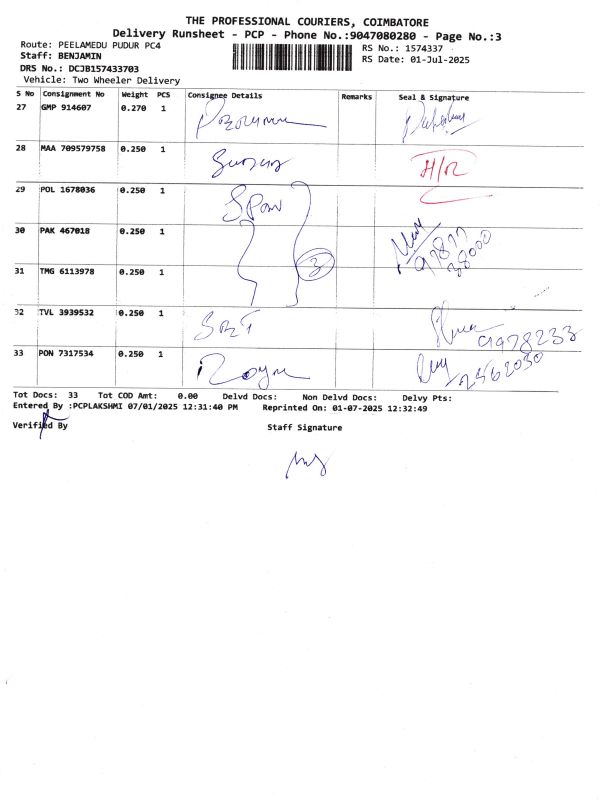 THE PROFESSIONAL COURIERS, COIMBATORE
Delivery Runsheet - PCP - Phone No.:9047080280 - Page No.:3
Route: PEELAMEDU PUDUR PC4
RS No.: 1574337
Staff: BENJAMIN
RS Date: 01-Jul-2025
DRS No.: DCJB157433703
Vehicle: Two Wheeler Delivery
S No Consignment No Weight PCS Consignee Details Remarks Seal & Signature
27 GMP 914607 0.270 1
28 MAA 709579758 0.250 1 H/R
29 POL 1678036 0.250 1
30 PAK 467018 0.250 1
31 TMG 6113978 0.250 1 3
32 TVL 3939532 0.250 1
33 PON 7317534 0.250 1
Tot Docs: 33 Tot COD Amt: 0.00 Delvd Docs: Non Delvd Docs: Delvy Pts:
Entered By :PCPLAKSHMI 07/01/2025 12:31:40 PM Reprinted On: 01-07-2025 12:32:49
Verified By Staff Signature